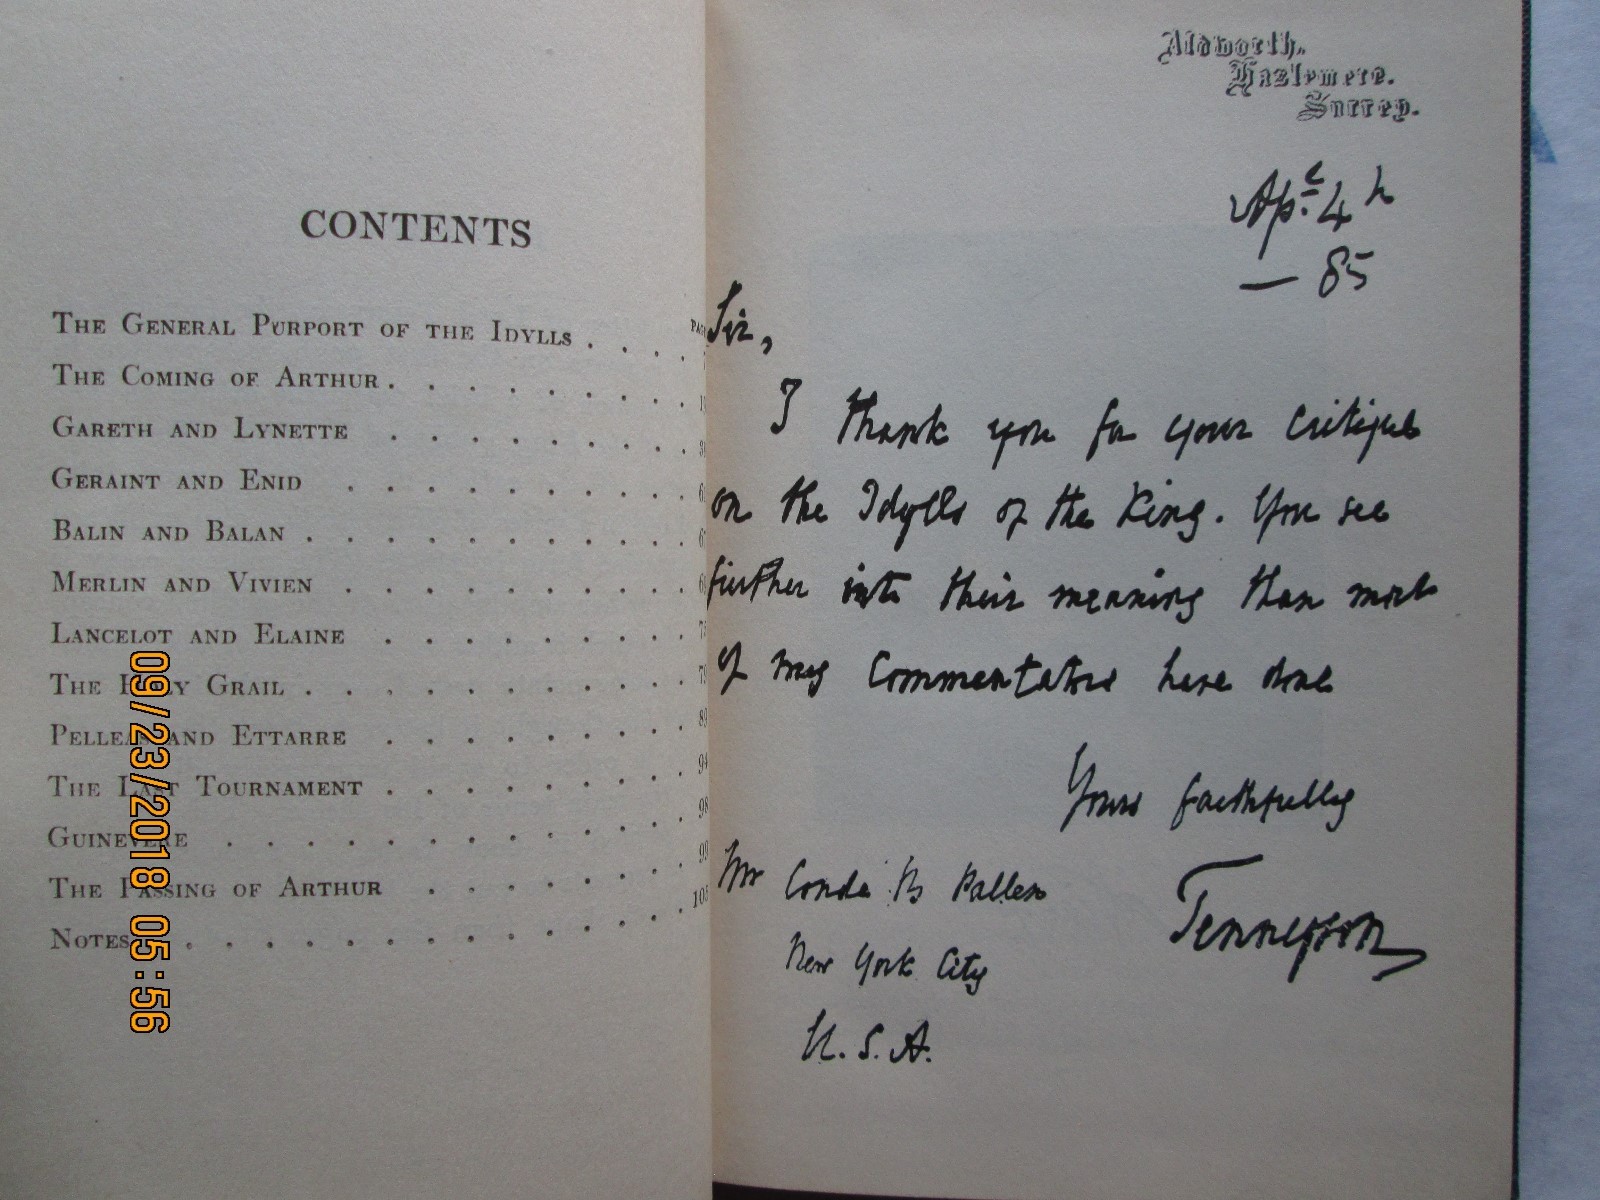 CONTENTS
THE GENERAL PURPORT OF THE IDYLLS . . . .
THE COMING OF ARTHUR . . . . . . . .
GARETH AND LYNETTE . . . . . . . .
GERAINT AND ENID . . . . . . . . .
BALIN AND BALAN . . . . . . . . . .
MERLIN AND VIVIEN . . . . . . . . .
LANCELOT AND ELAINE . . . . . . . .
THE HOLY GRAIL . . . . . . . . . .
PELLEAS AND ETTARRE . . . . . . . .
THE LAST TOURNAMENT . . . . . . . .
GUINEVERE . . . . . . . . . . . .
THE PASSING OF ARTHUR . . . . . . .
NOTES . . . . . . . . . . . . .
09/23/2018 05:56
Aldworth,
Hazlemere.
Surrey.
Apl. 4th
— 85
Sir,
I thank you for your critique
on the Idylls of the King. You see
further into their meaning than most
of my commentators have done
Yours faithfully
Tennyson
Mr Conde B Pallen
New York City
U. S. A.